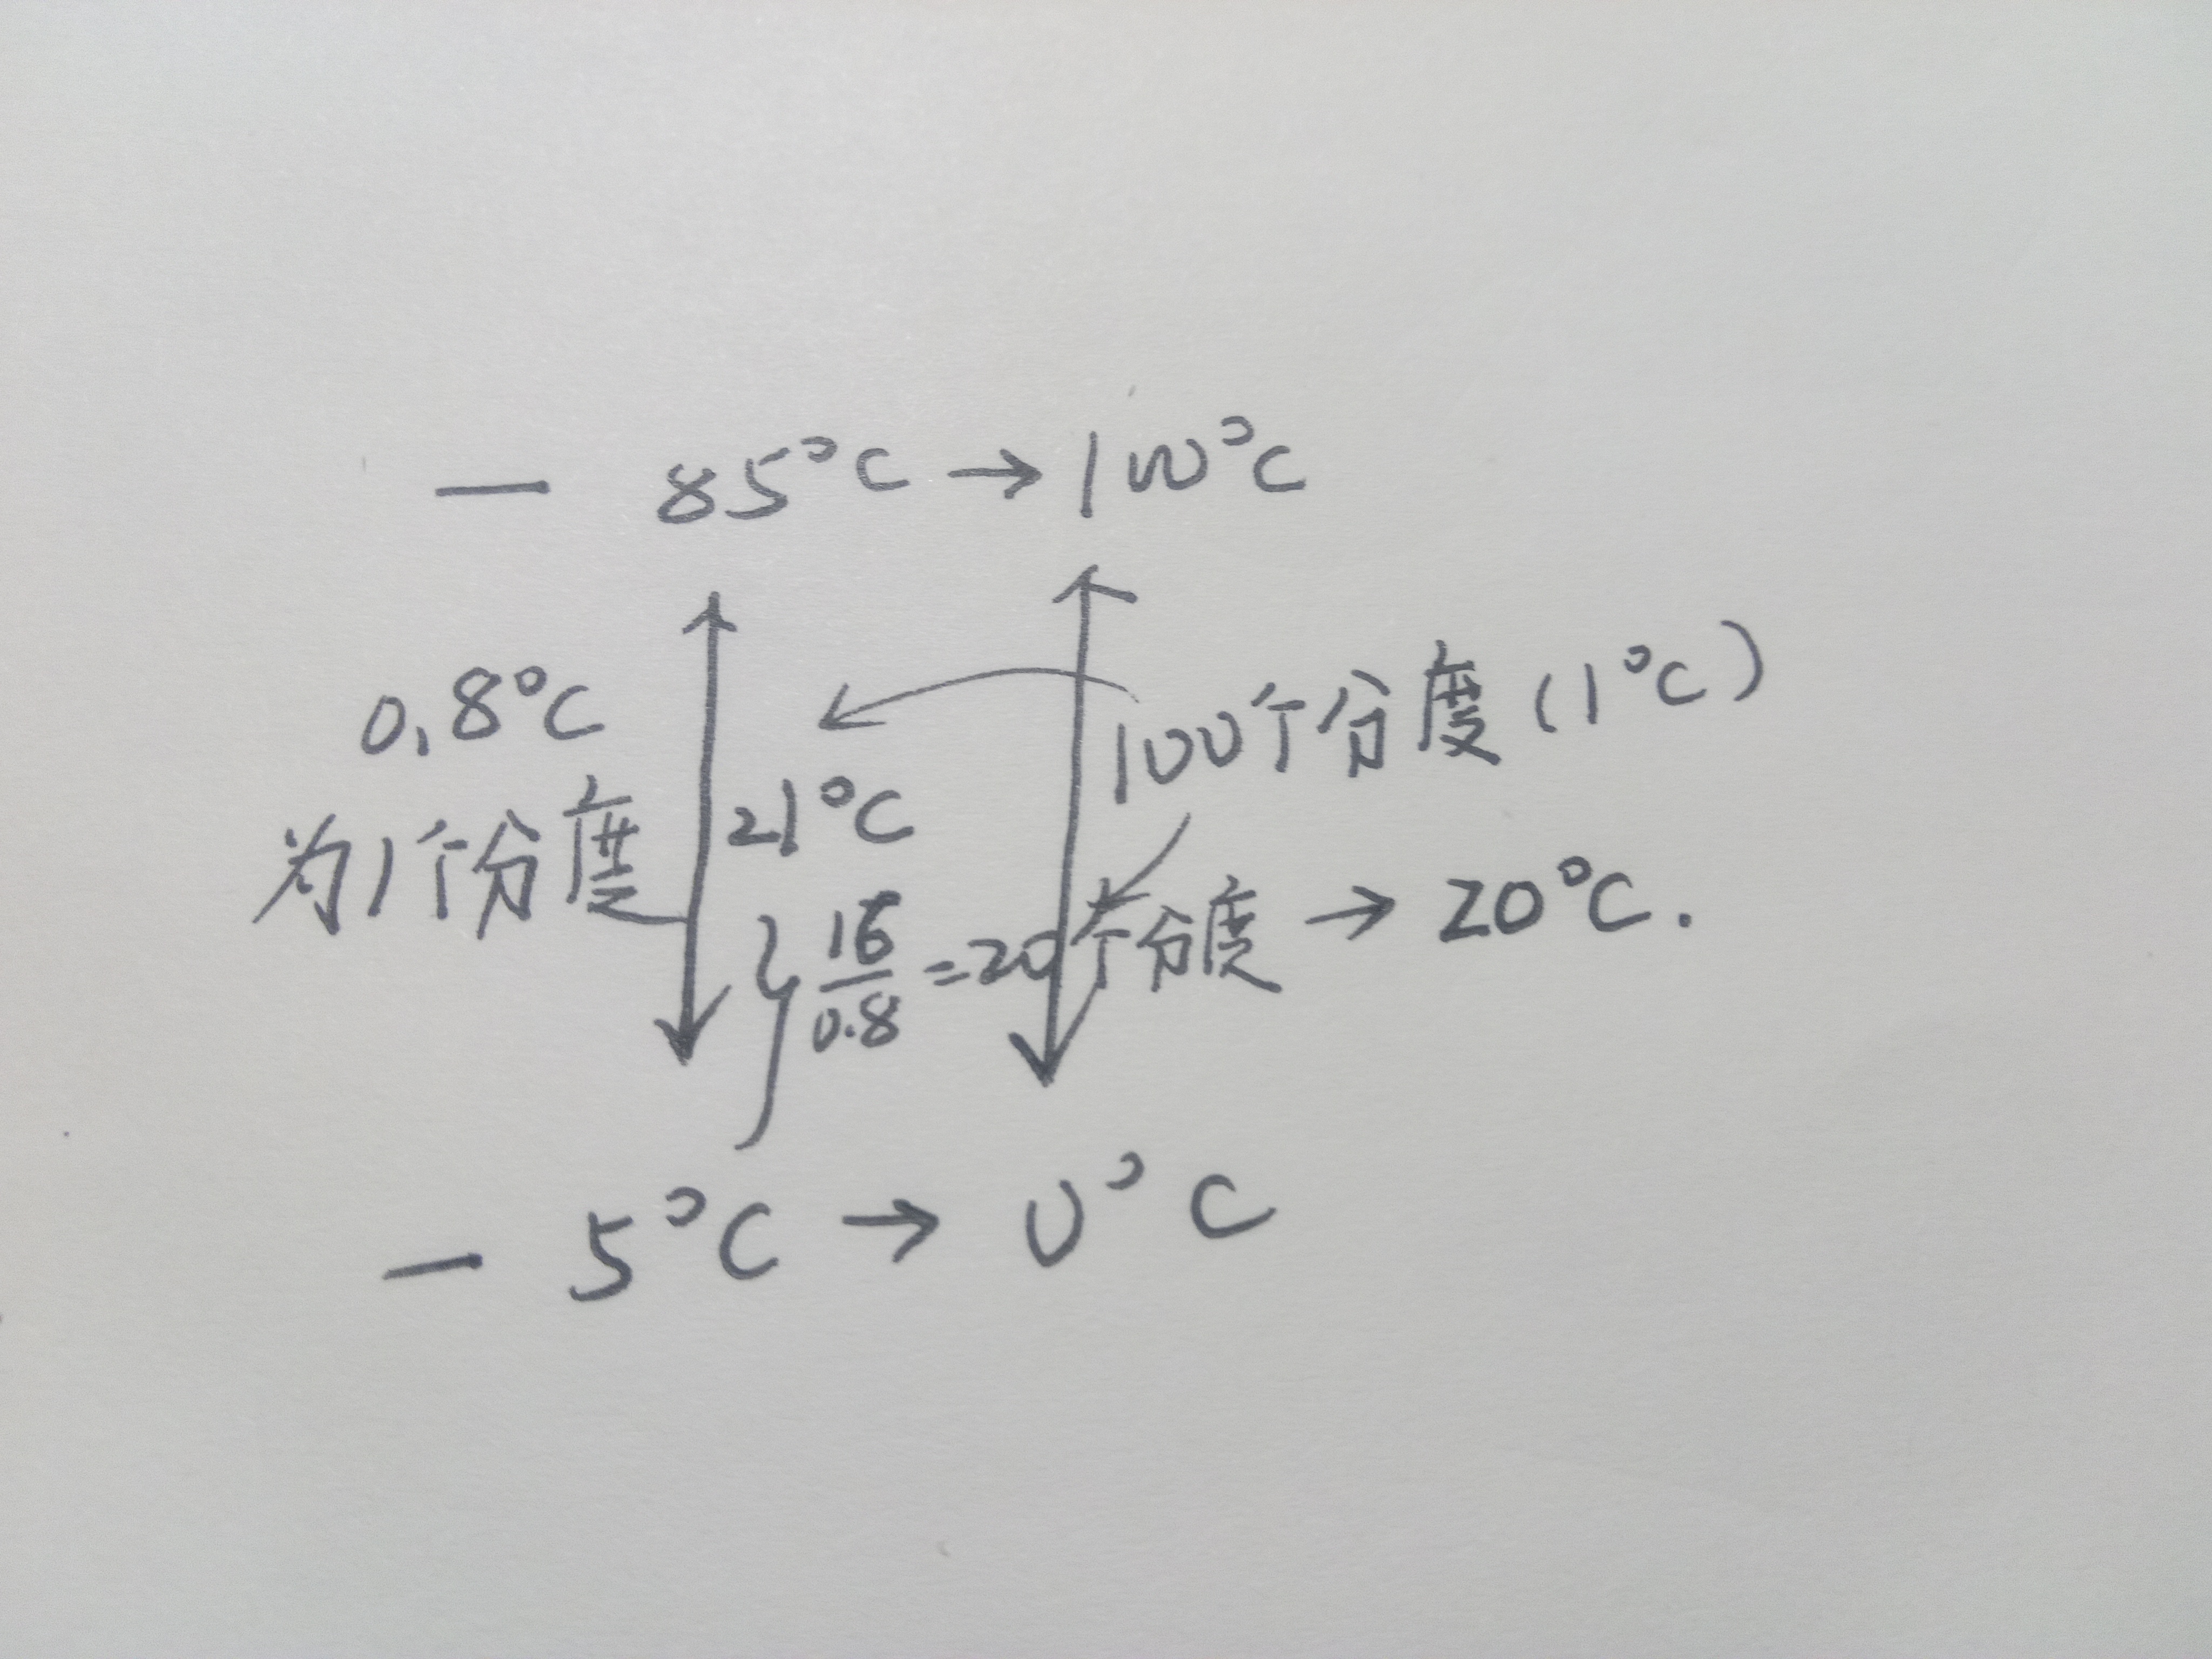 — 85°C → 100°C
0.8°C
100个分度(1°C)
为1个分度
21°C
16/0.8 = 20个分度 → 20°C.
— 5°C → 0°C